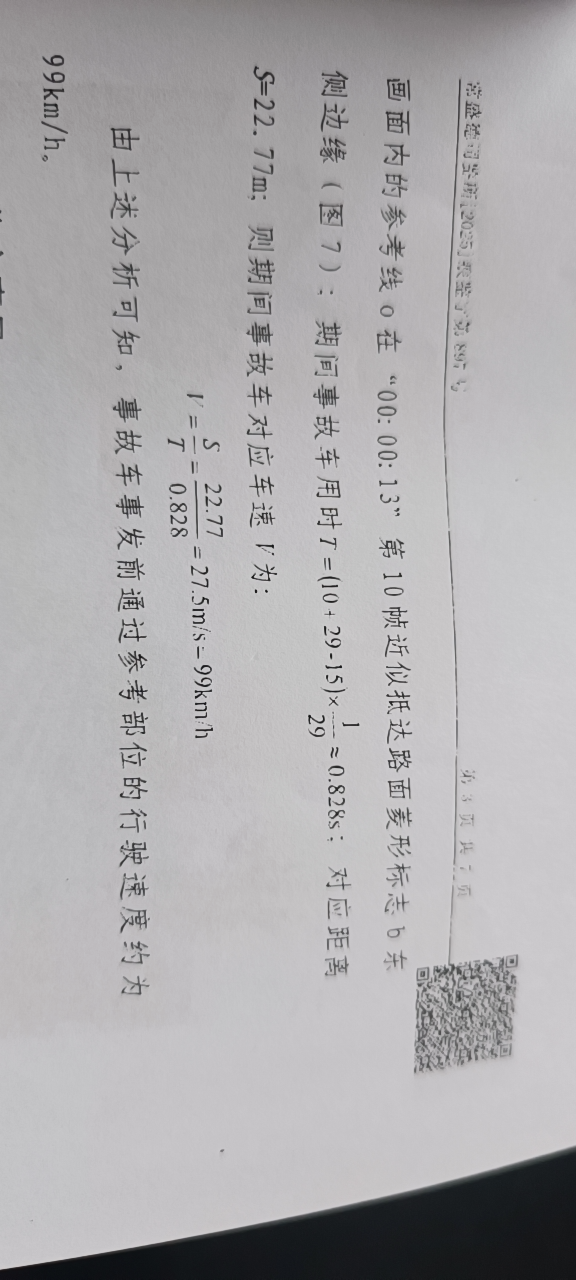 第 3 页 共 7 页
画面内的参考线 o 在 “00:00:13” 第 10 帧近似抵达路面菱形标志 b 东
侧边缘（图 7）；期间事故车用时 T=(10+29-15)×1/29≈0.828s；对应距离
S=22.77m；则期间事故车对应车速 V 为：
V=S/T=22.77/0.828=27.5m/s=99km/h
由上述分析可知，事故车事发前通过参考部位的行驶速度约为
99km/h。